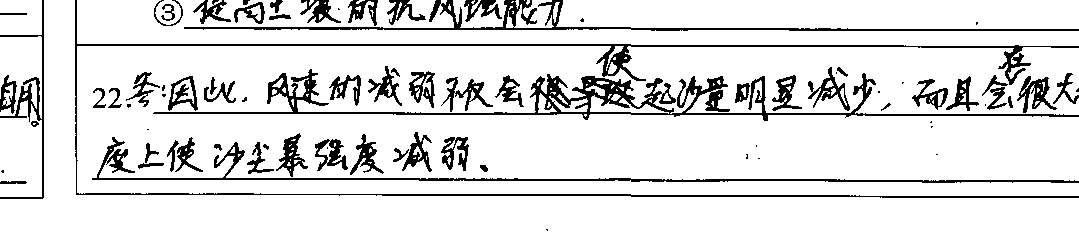 ③ 提高土壤的抗风蚀能力.
自用。
22.答:因此,风速的减弱不仅会使起沙量明显减少,而且会在很大
度上使沙尘暴强度减弱。